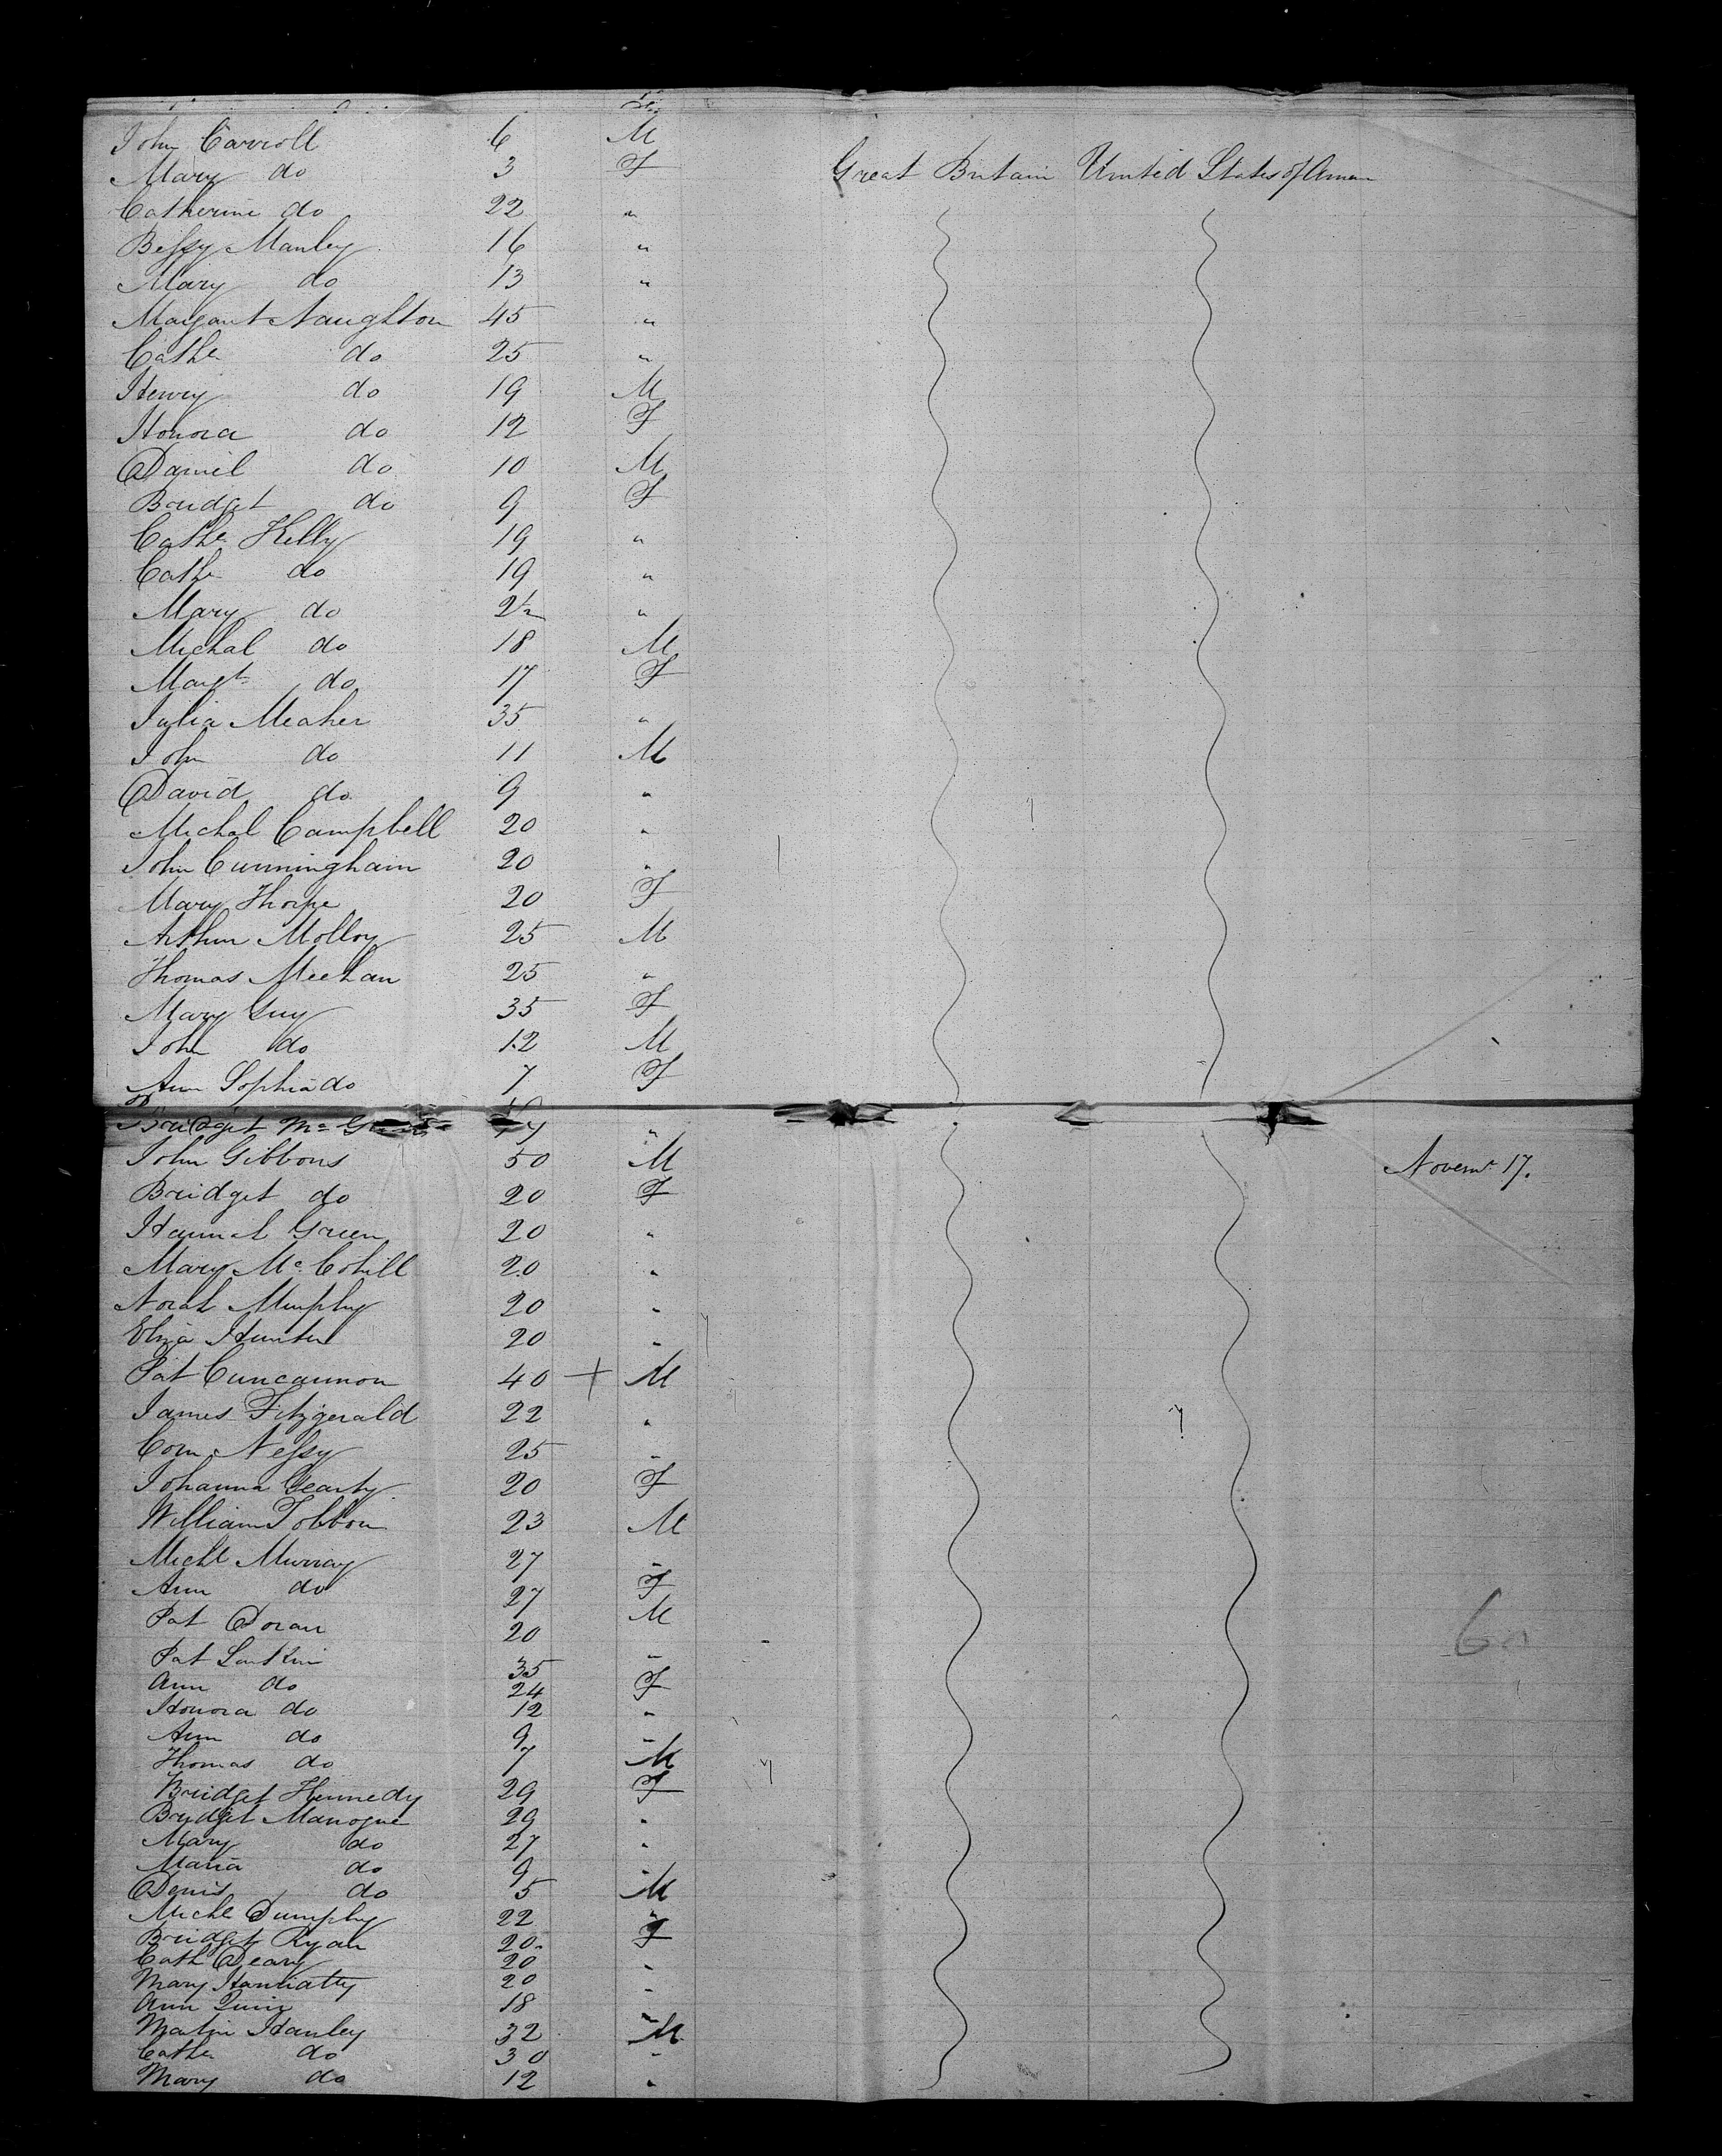 John Carroll 6 M
Mary do 3 F Great Britain United States of Amer
Catherine do 22 "
Bessy Manley 16 "
Mary do 13 "
Margaret Naughton 45 "
Cathe do 25 "
Henry do 19 M
Honora do 12 F
Daniel do 10 M
Bridget do 9 F
Cathe Kelly 19 "
Cathe do 19 "
Mary do 2½ "
Michal do 18 M
Margt do 17 F
Julia Meaher 35 "
John do 11 M
David do 9 "
Michal Campbell 20 "
John Cunningham 20 "
Mary Thorpe 20 F
Arthur Molloy 25 M
Thomas Meehan 25 "
Mary Guy 35 F
John do 12 M
Ann Sophia do 7 F
Bridget Mc "
John Gibbons 50 M Novemr 17.
Bridget do 20 F
Hannah Green 20 "
Mary McCohill 20 "
Norah Murphy 20 "
Eliza Hunter 20 "
Pat Cuncannon 40 + M
James Fitzgerald 22 "
Corn Nessy 25 "
Johanna Gearty 20 F
William Tobbon 23 M
Michl Murray 27 "
Ann do 27 F
Pat Doran 20 M
Pat Larkin 35 "
Ann do 24 F
Honora do 12 "
Ann do 9 "
Thomas do 7 M
Bridget Kennedy 29 F
Bridget Manogue 29 "
Mary do 27 "
Maria do 9 "
Denis do 5 M
Michl Dumphy 22 "
Bridget Ryan 20 F
Cath Deary 20 "
Mary 20 "
Ann Quin 18 "
Matin Hanley 32 M
Cathe do 30 "
Mary do 12 "